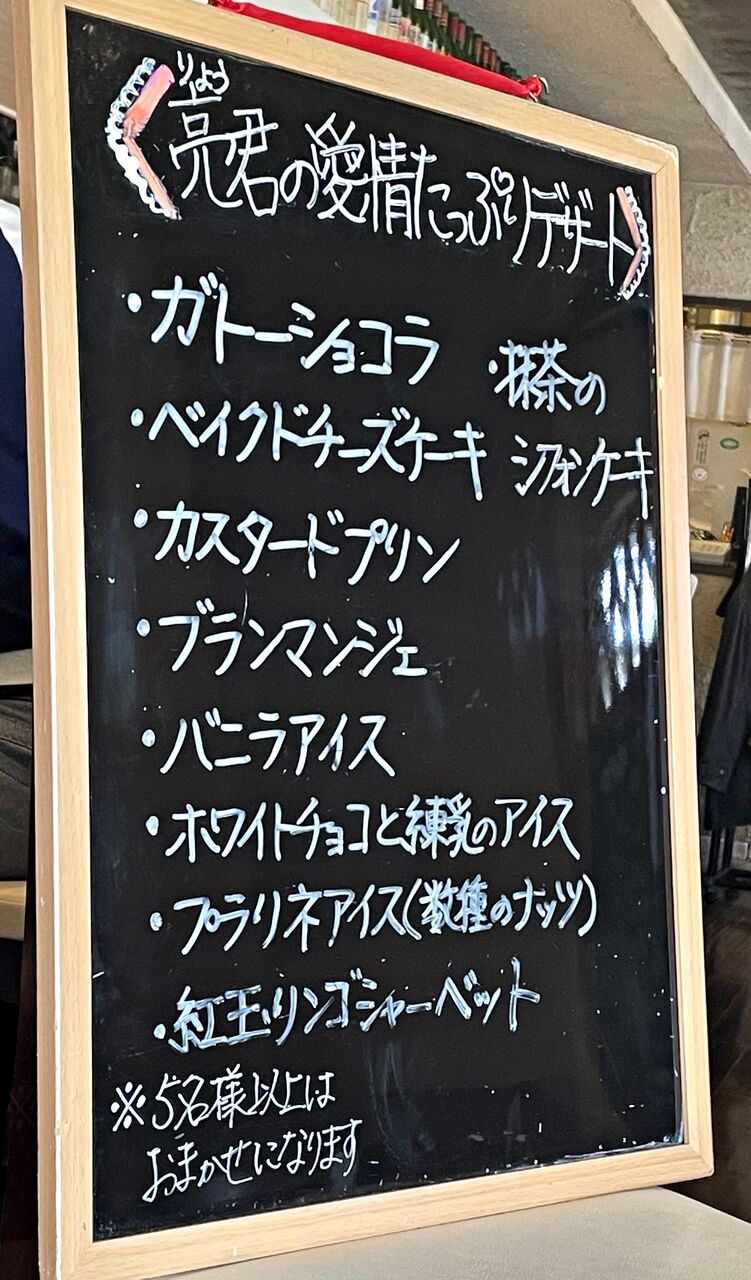 りょう
亮君の愛情たっぷりデザート
・ガトーショコラ
・ベイクドチーズケーキ
・カスタードプリン
・ブランマンジェ
・バニラアイス
・ホワイトチョコと練乳のアイス
・プラリネアイス(数種のナッツ)
・紅玉リンゴシャーベット
・抹茶の
シフォンケーキ
※5名様以上は
おまかせになります